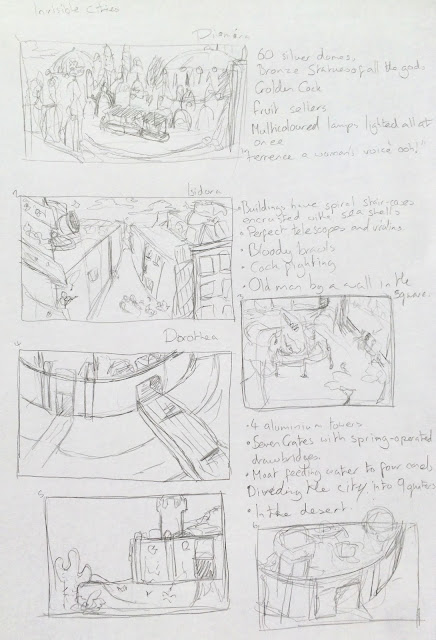 Invisible Cities
Diomira
60 silver domes,
Bronze Statues of all the gods
Golden Cock
Fruit sellers
Multicoloured lamps lighted all at
once
terrence a woman's voice ooh!"
Isidora
Buildings have spiral staircases
encrusted with sea shells
• Perfect telescopes and violins
• Bloody brawls
• Cock fighting
• Old men by a wall in the
square.
Dorothea
• 4 aluminium towers
• Seven Gates with spring-operated
drawbridges
• Moat feeding water to four canals,
Divideing the city into 9 quaters
• In the desert.